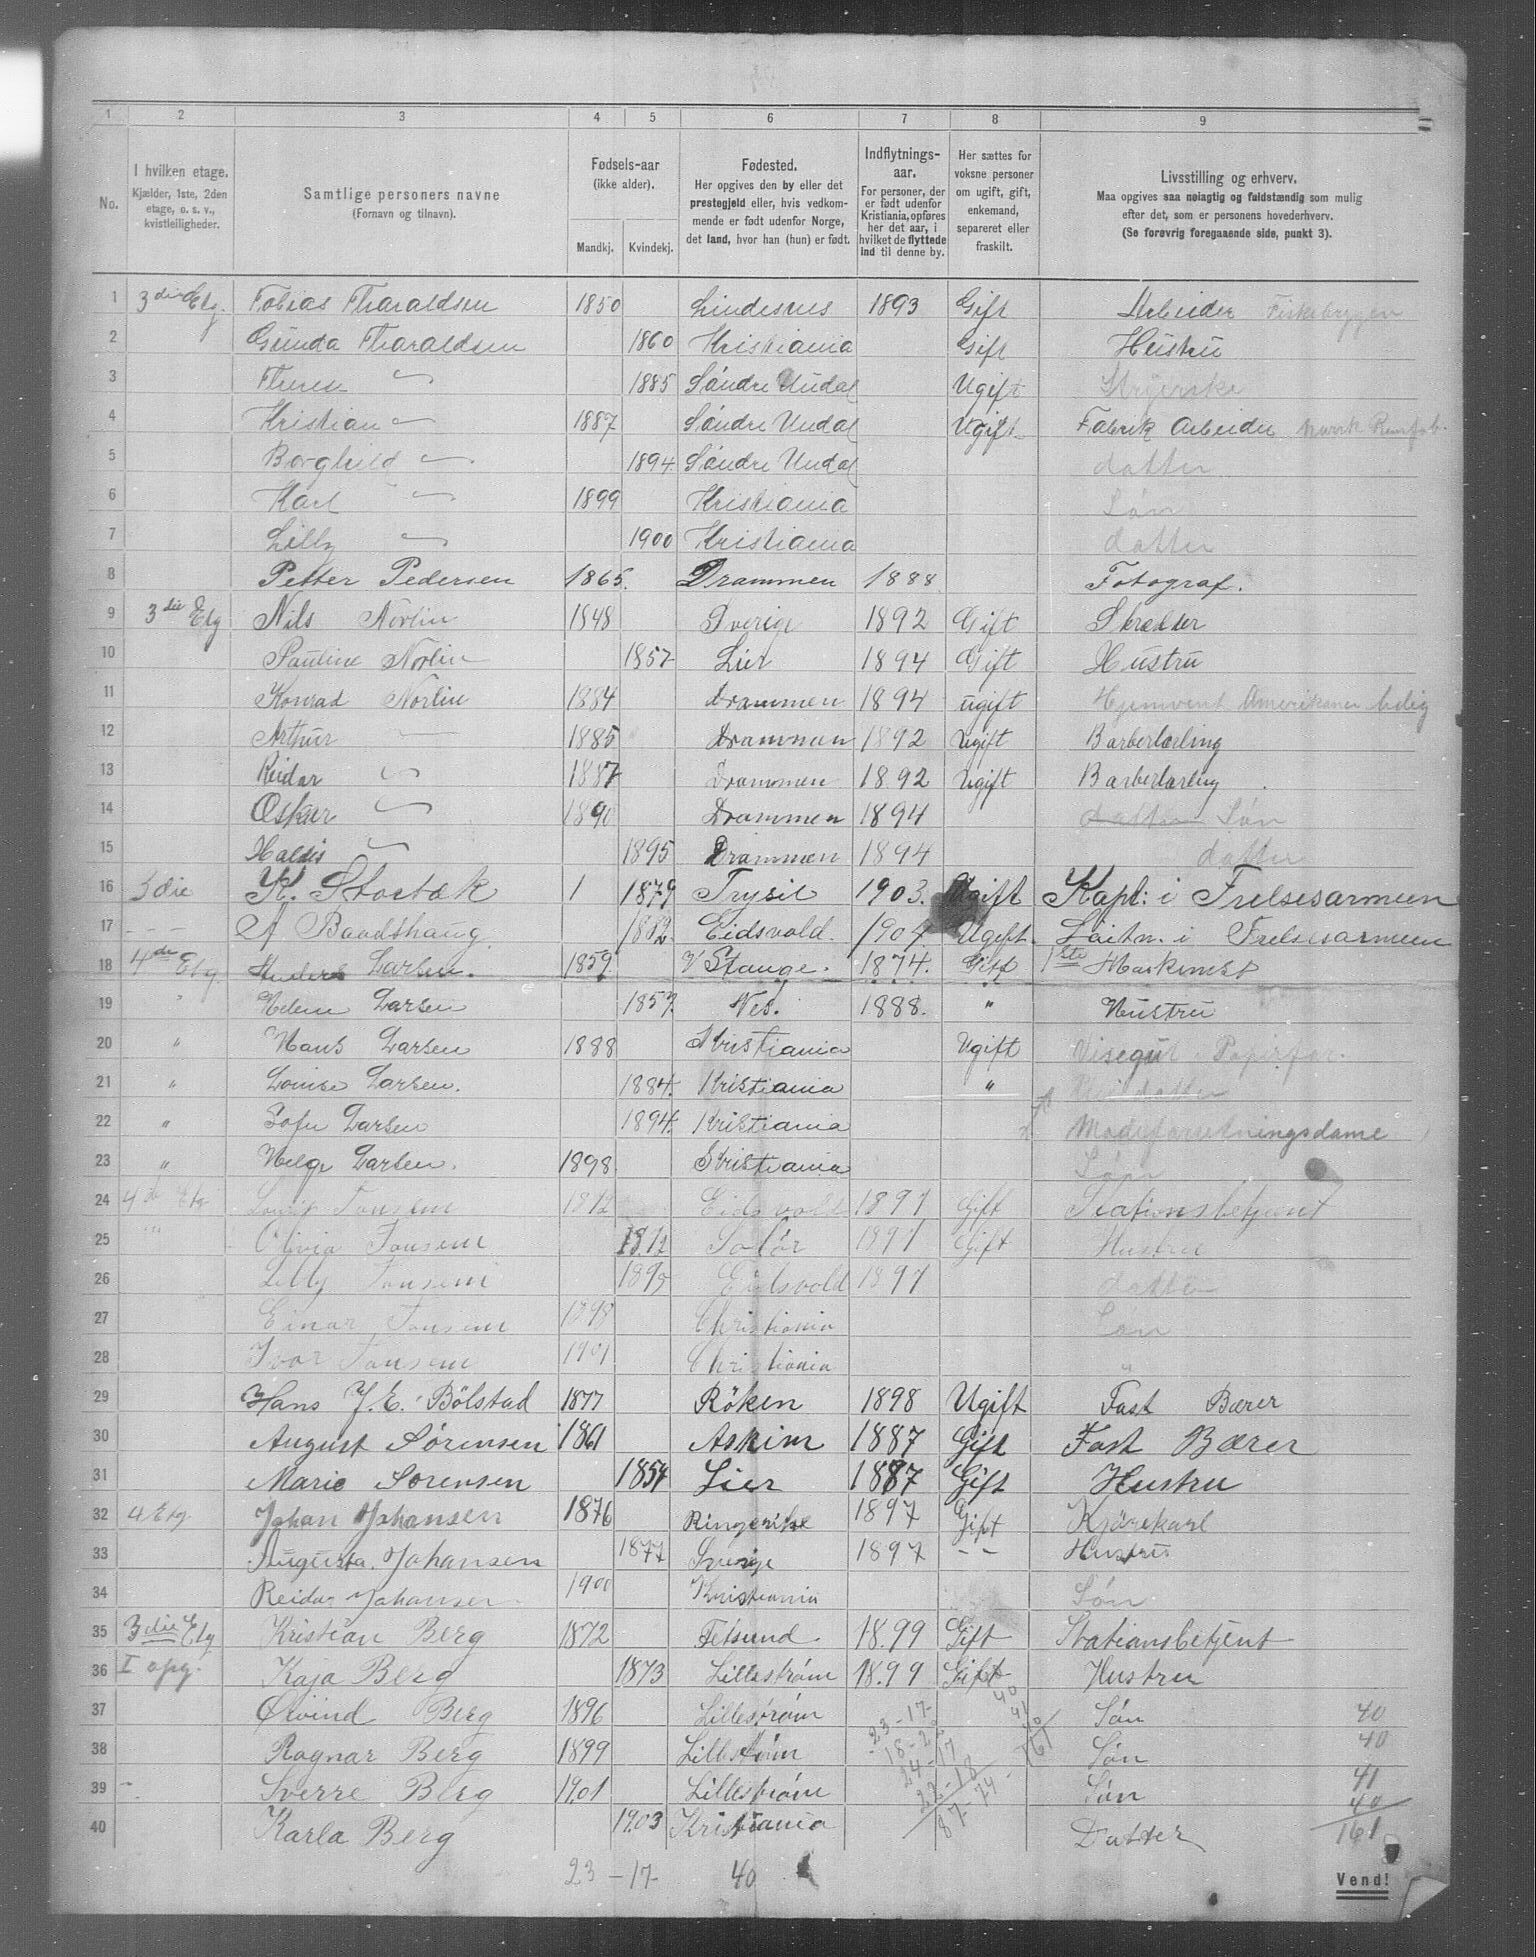 1 2 3 4 5 6 7 8 9
No.
I hvilken etage.
Kjælder, 1ste, 2den
etage, o. s. v.,
kvistleiligheder.
Samtlige personers navne
(Fornavn og tilnavn).
Fødsels-aar
(ikke alder).
Mandkj. Kvindekj.
Fødested.
Her opgives den by eller det
prestegjeld eller, hvis vedkom-
mende er født udenfor Norge,
det land, hvor han (hun) er født.
Indflytnings-
aar.
For personer, der
er født udenfor
Kristiania, opføres
her det aar, i
hvilket de flyttede
ind til denne by.
Her sættes for
voksne personer
om ugift, gift,
enkemand,
separeret eller
fraskilt.
Livsstilling og erhverv.
Maa opgives saa nøiagtig og fuldstændig som mulig
efter det, som er personens hovederhverv.
(Se forøvrig foregaaende side, punkt 3).
1 3die Etg. Tobias Tharaldsen 1850 Lindesnes 1893 Gift Arbeider Fiskebryggen
2 Gunda Tharaldsen 1860 Kristiania Gift Hustru
3 " 1885 Söndre Undal Ugift Strÿerske
4 Kristian " 1887 Söndre Undal Ugift Fabrik Arbeider
5 Borghild " 1894 Söndre Undal datter
6 Karl " 1899 Kristiania Søn
7 Lilly " 1900 Kristiania datter
8 Petter Pedersen 1865. Drammen 1888 Fotograf.
9 3die Etg Nils Norlin 1848 Sverige 1892 Gift Skrædder
10 Pauline Norlin 1857 Lier 1894 Gift Hustru
11 Konrad Norlin 1884 Drammen 1894 ugift Hjemvent Amerikaner ledig
12 Arthur — 1885 Drammen 1892 Ugift Barberlærling
13 Reidar " 1887 Drammen 1892 Ugift Barberlærling
14 Oskar " 1890 Drammen 1894 datter Søn
15 Haldis " 1895 Drammen 1894 datter
16 3die K. Storbæk 1 1879 Trysil 1903. Ugift Kapt: i Frelsesarmeen
17 - - - A Baadshaug 1882. Eidsvold. 1904 Ugift. Laitn. i Frelsesarmeen
18 4de Etg. Anders Larsen. 1859. V Stange. 1874. Gift 1ste Maskinist
19 " Helene Larsen 1857. Nes. 1888. " Hustru
20 " Hans Larsen 1888 Kristiania Ugift Visegut i Papirfor.
21 " Louise Larsen. 1884. Kristiania "
22 " Sofie Larsen 1894. Kristiania Modeforretningsdame
23 " Helge Larsen. 1898. Kristiania Søn
24 4de Etg 1872 Eidsvold 1897 Gift Stationsbetjent
25 """ Olivia Jansem 1872 Solør 1897 Gift Hustru
26 Lilly Jansem 1895 Eidsvold 1897 datter
27 Einar Jansem 1898 Christiania Søn
28 Ivar Jansem 1901 Christiania "
29 Hans J. E. Bölstad 1877 Röken 1898 Ugift Fast Bærer
30 August Sörensen 1861 Askim 1887 Gift Fast Bærer
31 Marie Sorensen 1854 Lier 1887 Gift Hustru
32 4 Etg. Johan Johansen 1876 Ringerike 1897 Gift Kjörekarl
33 Augusta. Johansen 1877 Sverige 1897 - - Hustru
34 Reidar Johansen 1900 Kristiania Søn
35 3die Etg Kristian Berg 1872 Fetsund 1899 Gift Stationsbetjent
36 I opg. Kaja Berg 1873 Lillestrøm 1899 Gift Hustru
37 Øivind Berg 1896 Lillestrøm Søn 40
38 Ragnar Berg 1899 Lillestrøm Søn 40
39 - Sverre Berg 1901 Lillestrøm Søn 41
40 Karla Berg 1903 Kristiania Datter 40
161
23-17-
18-22
24-17
22-18
87-74
40
41
40
161
23-17- 40
Vend!